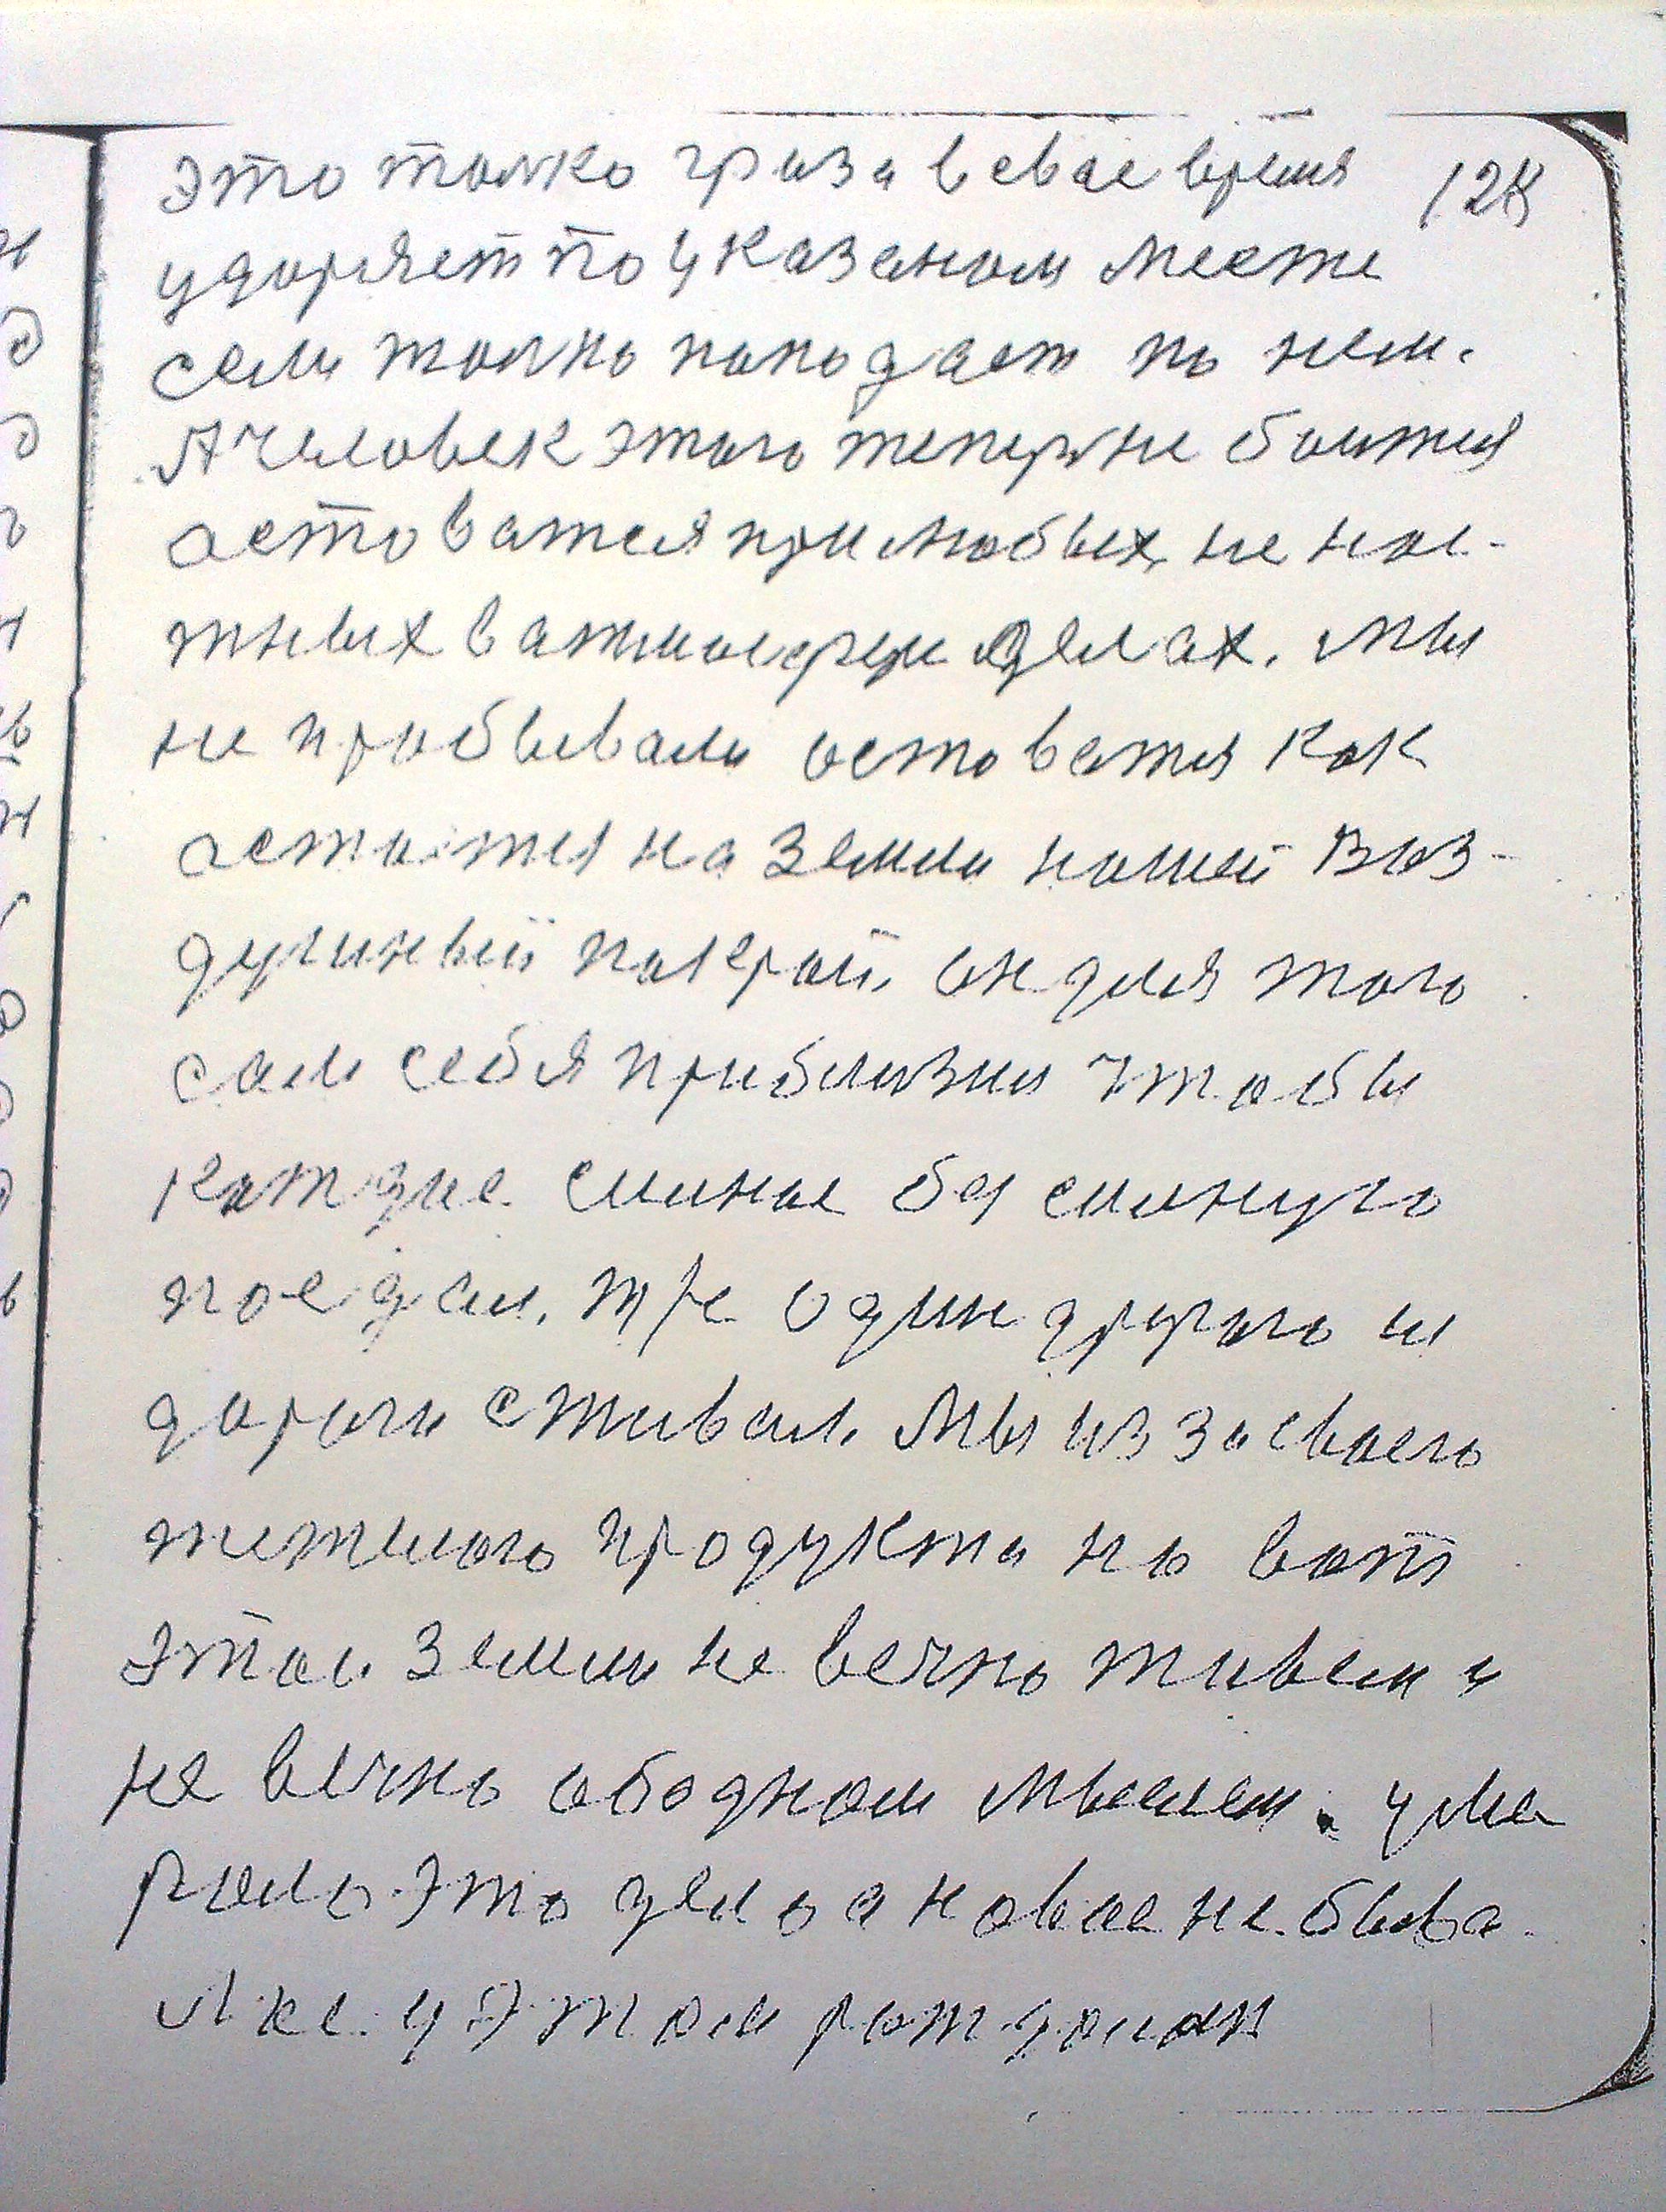 это толко гроза в свае время 128
ударяет по указаном месте
сели толко поподает по нем.
А человек этого теперь не боится
астоватся при любых не нас-
тных в атмосфери делах. Мы
не пробывали остоватся как
астоится на Земли нашей Воз-
душный покрой, он для того
сам себя приблизил чтобы
катдые силное бессилного
поедал. т/е один другого и
дароги стивал. Мы из за своего
титного продукта но вот
этои земли не вечно тивем и
не вечно ободном мыслем. уме
рало это дело а новае не быва
ло